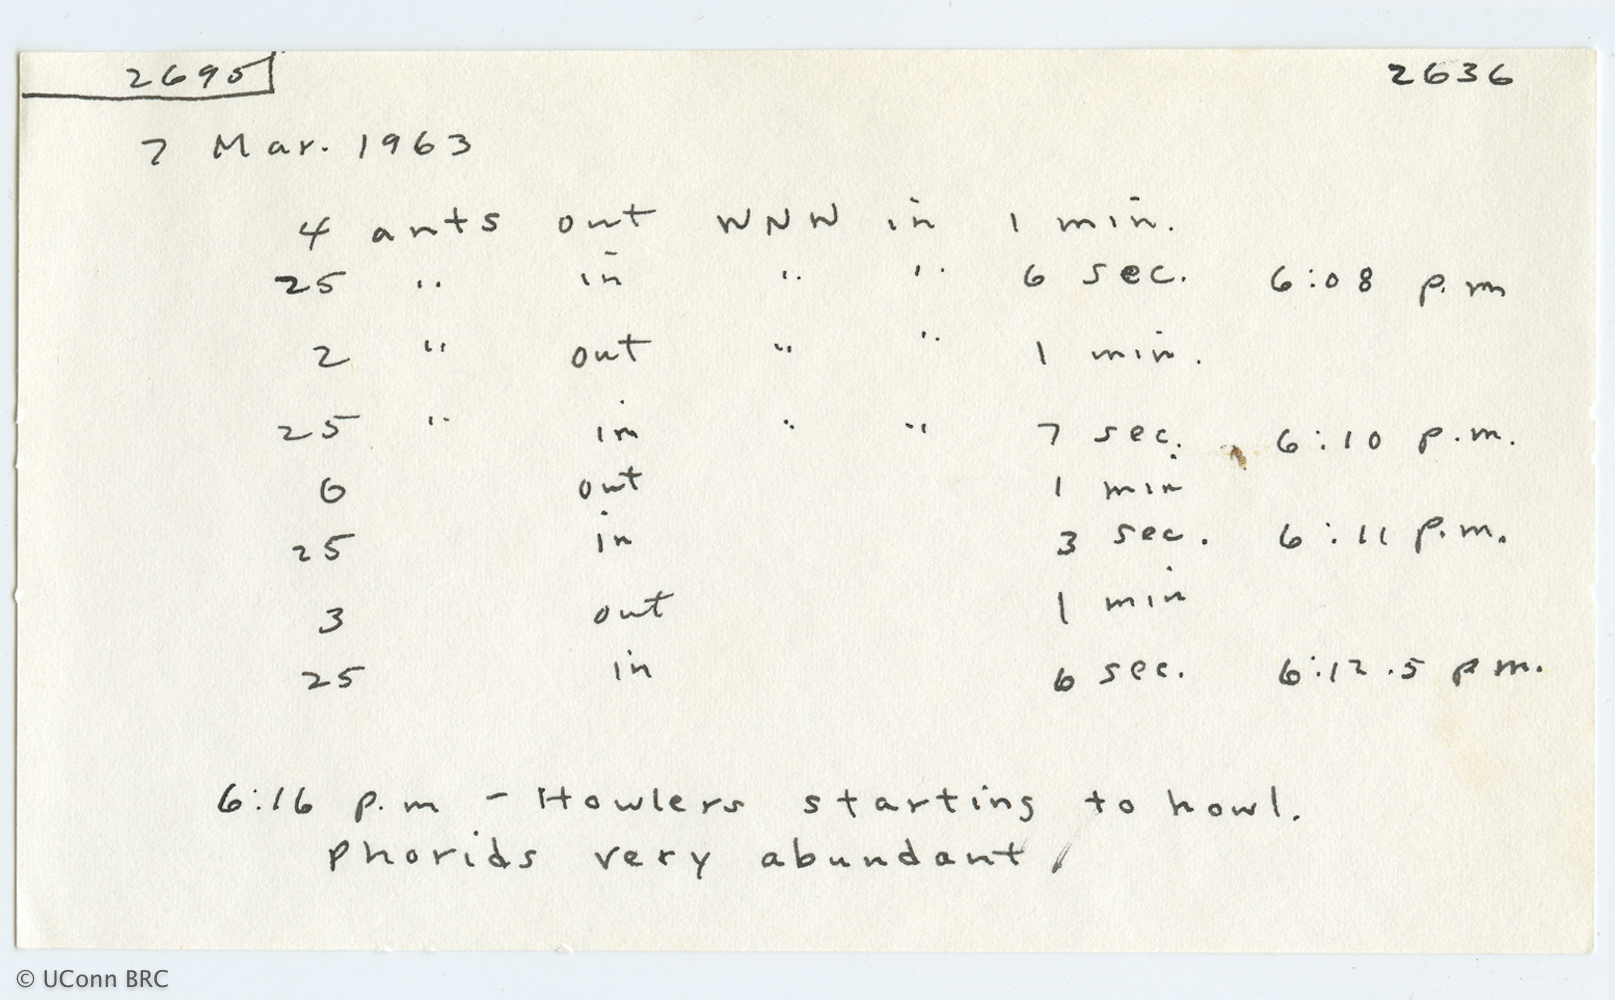 2695 2636
7 Mar. 1963
4 ants out WNW in 1 min.
25 " in " " 6 sec. 6:08 p.m
2 " out " " 1 min.
25 " in " " 7 sec. 6:10 p.m.
6 out 1 min
25 in 3 sec. 6:11 p.m.
3 out 1 min
25 in 6 sec. 6:12.5 p m.
6:16 p.m - Howlers starting to howl.
Phorids very abundant
© UConn BRC